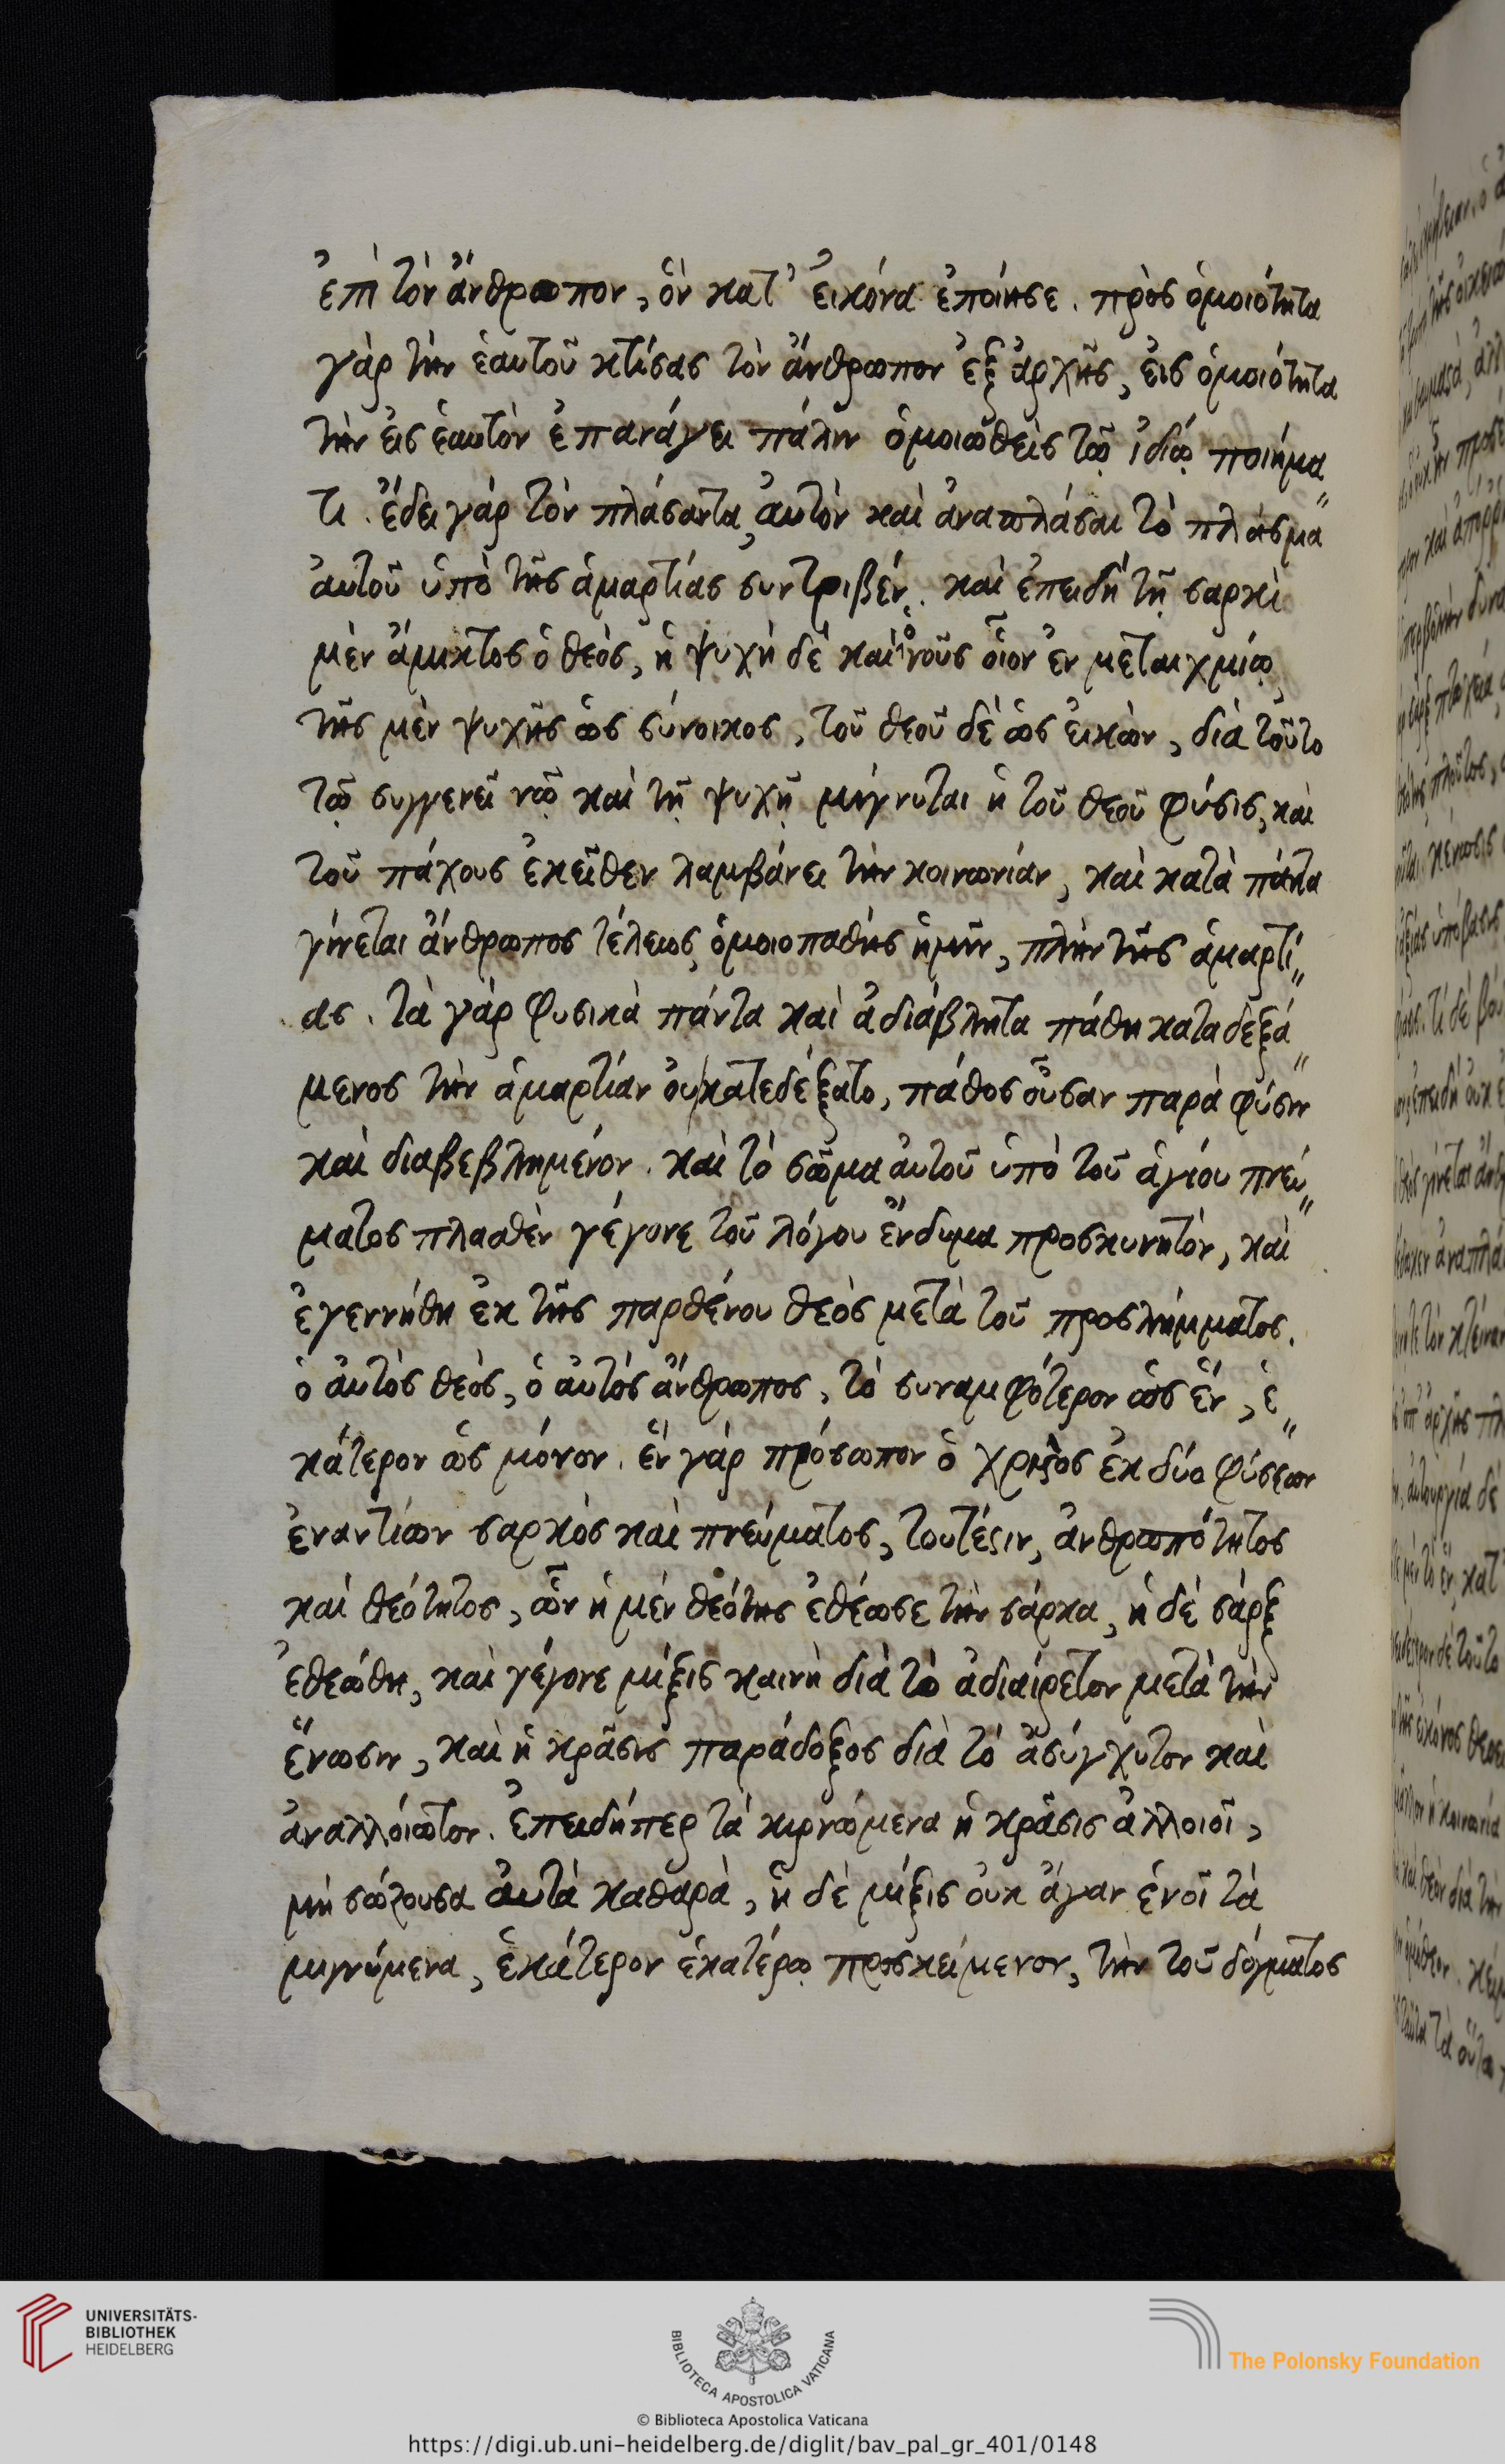 ἐπὶ τὸν ἄνθρωπον, ὃν κατ᾽ εἰκόνα ἐποίησε. πρὸς ὁμοιότητα
γὰρ τὴν ἑαυτοῦ κτίσας τὸν ἄνθρωπον ἐξ ἀρχῆς, εἰς ὁμοιότητα
τὴν εἰς ἑαυτὸν ἐπανάγει πάλιν ὁμοιωθεὶς τῷ ἰδίῳ ποιήμα
τι. ἔδει γὰρ τὸν πλάσαντα αὐτὸν καὶ ἀναπλάσαι τὸ πλάσμα
αὐτοῦ ὑπὸ τῆς ἁμαρτίας συντριβέν. καὶ ἐπειδὴ τῇ σαρκὶ
μὲν ἄμικτος ὁ θεὸς, ἡ ψυχὴ δὲ καὶ ὁ νοῦς οἷον ἐν μεταιχμίῳ
τῆς μὲν ψυχῆς ὡς σύνοικος, τοῦ θεοῦ δὲ ὡς εἰκὼν, διὰ τοῦτο
τῷ συγγενεῖ νῷ καὶ τῇ ψυχῇ μίγνυται ἡ τοῦ θεοῦ φύσις, καὶ
τοῦ πάχους ἐκεῖθεν λαμβάνει τὴν κοινωνίαν, καὶ κατὰ πάντα
γίνεται ἄνθρωπος τέλειος ὁμοιοπαθὴς ἡμῖν, πλὴν τῆς ἁμαρτί
ας. τὰ γὰρ φυσικὰ πάντα καὶ ἀδιάβλητα πάθη καταδεξά
μενος τὴν ἁμαρτίαν οὐ κατεδέξατο, πάθος οὖσαν παρὰ φύσιν
καὶ διαβεβλημένον. καὶ τὸ σῶμα αὐτοῦ ὑπὸ τοῦ ἁγίου πνεύ
ματος πλασθὲν γέγονε τοῦ λόγου ἔνδυμα προσκυνητόν, καὶ
ἐγεννήθη ἐκ τῆς παρθένου θεὸς μετὰ τοῦ προσλήμματος.
ὁ αὐτὸς θεὸς, ὁ αὐτὸς ἄνθρωπος, τὸ συναμφότερον ὡς ἕν, ἑ
κάτερον ὡς μόνον. ἓν γὰρ πρόσωπον ὁ χριστὸς ἐκ δύο φύσεων
ἐναντίων σαρκὸς καὶ πνεύματος, τουτέστιν, ἀνθρωπότητος
καὶ θεότητος, ὧν ἡ μὲν θεότης ἐθέωσε τὴν σάρκα, ἡ δὲ σὰρξ
ἐθεώθη, καὶ γέγονε μίξις καινὴ διὰ τὸ ἀδιαίρετον μετὰ τὴν
ἕνωσιν, καὶ ἡ κρᾶσις παράδοξος διὰ τὸ ἀσύγχυτον καὶ
ἀναλλοίωτον. ἐπειδήπερ τὰ κιρνώμενα ἡ κρᾶσις ἀλλοιοῖ,
μὴ σώζουσα αὐτὰ καθαρὰ, ἡ δὲ μίξις οὐκ ἄγαν ἑνοῖ τὰ
μιγνύμενα, ἑκάτερον ἑκατέρῳ προσκείμενον, τὴν τοῦ δόγματος
UNIVERSITÄTS-
BIBLIOTHEK
HEIDELBERG
BIBLIOTECA APOSTOLICA VATICANA
The Polonsky Foundation
© Biblioteca Apostolica Vaticana
https://digi.ub.uni-heidelberg.de/diglit/bav_pal_gr_401/0148